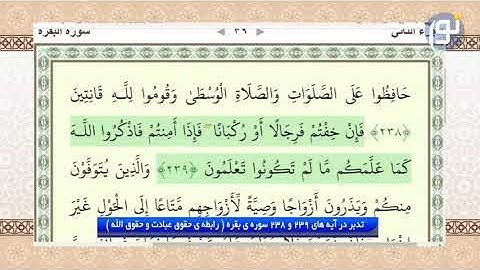 نور
سوره البقره
٣٩
ء الثاني
حَافِظُوا عَلَى الصَّلَوَاتِ وَالصَّلَاةِ الْوُسْطَىٰ وَقُومُوا لِلَّـهِ قَانِتِينَ
﴿٢٣٨﴾ فَإِنْ خِفْتُمْ فَرِجَالًا أَوْ رُكْبَانًا ۖ فَإِذَا أَمِنتُمْ فَاذْكُرُوا اللَّـهَ
كَمَا عَلَّمَكُم مَّا لَمْ تَكُونُوا تَعْلَمُونَ ﴿٢٣٩﴾ وَالَّذِينَ يُتَوَفَّوْنَ
مِنكُمْ وَيَذَرُونَ أَزْوَاجًا وَصِيَّةً لِّأَزْوَاجِهِم مَّتَاعًا إِلَى الْحَوْلِ غَيْرَ
تدبر در آیه های ۲۳۹ و ۲۳۸ سوره ی بقره ( رابطه ی حقوق عبادت و حقوق الله )